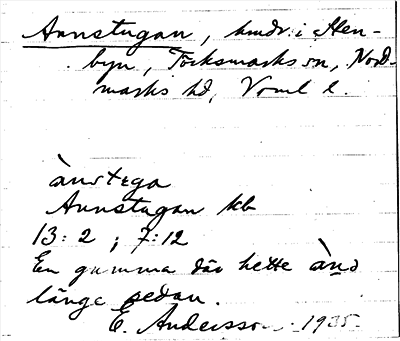 Annstugan, hmdr i Hen-
byn, Töcksmarks sn, Nord-
marks hd, Vrml l.
ànstega
Annstugan kb
13:2; 7:12
En gumma där hette ànd
länge sedan.
E. Andersson 1935